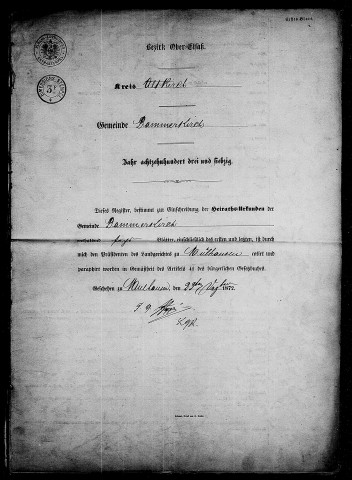 Bezirk Ober-Elsaß.
Kreis Altkirch
Gemeinde Dammerkirch
Jahr achtzehnhundert drei und siebzig.
Dieses Register, bestimmt zur Einschreibung der Heiraths-Urkunden der
Gemeinde Dammerkirch
Blätter, einschließlich des ersten und letzten, ist durch
mich den Präsidenten des Landgerichts zu Mülhausen cotirt und
paraphirt worden in Gemäßheit des Artikels 41 des bürgerlichen Gesetzbuches.
Geschehen zu Mülhausen, den 1872.